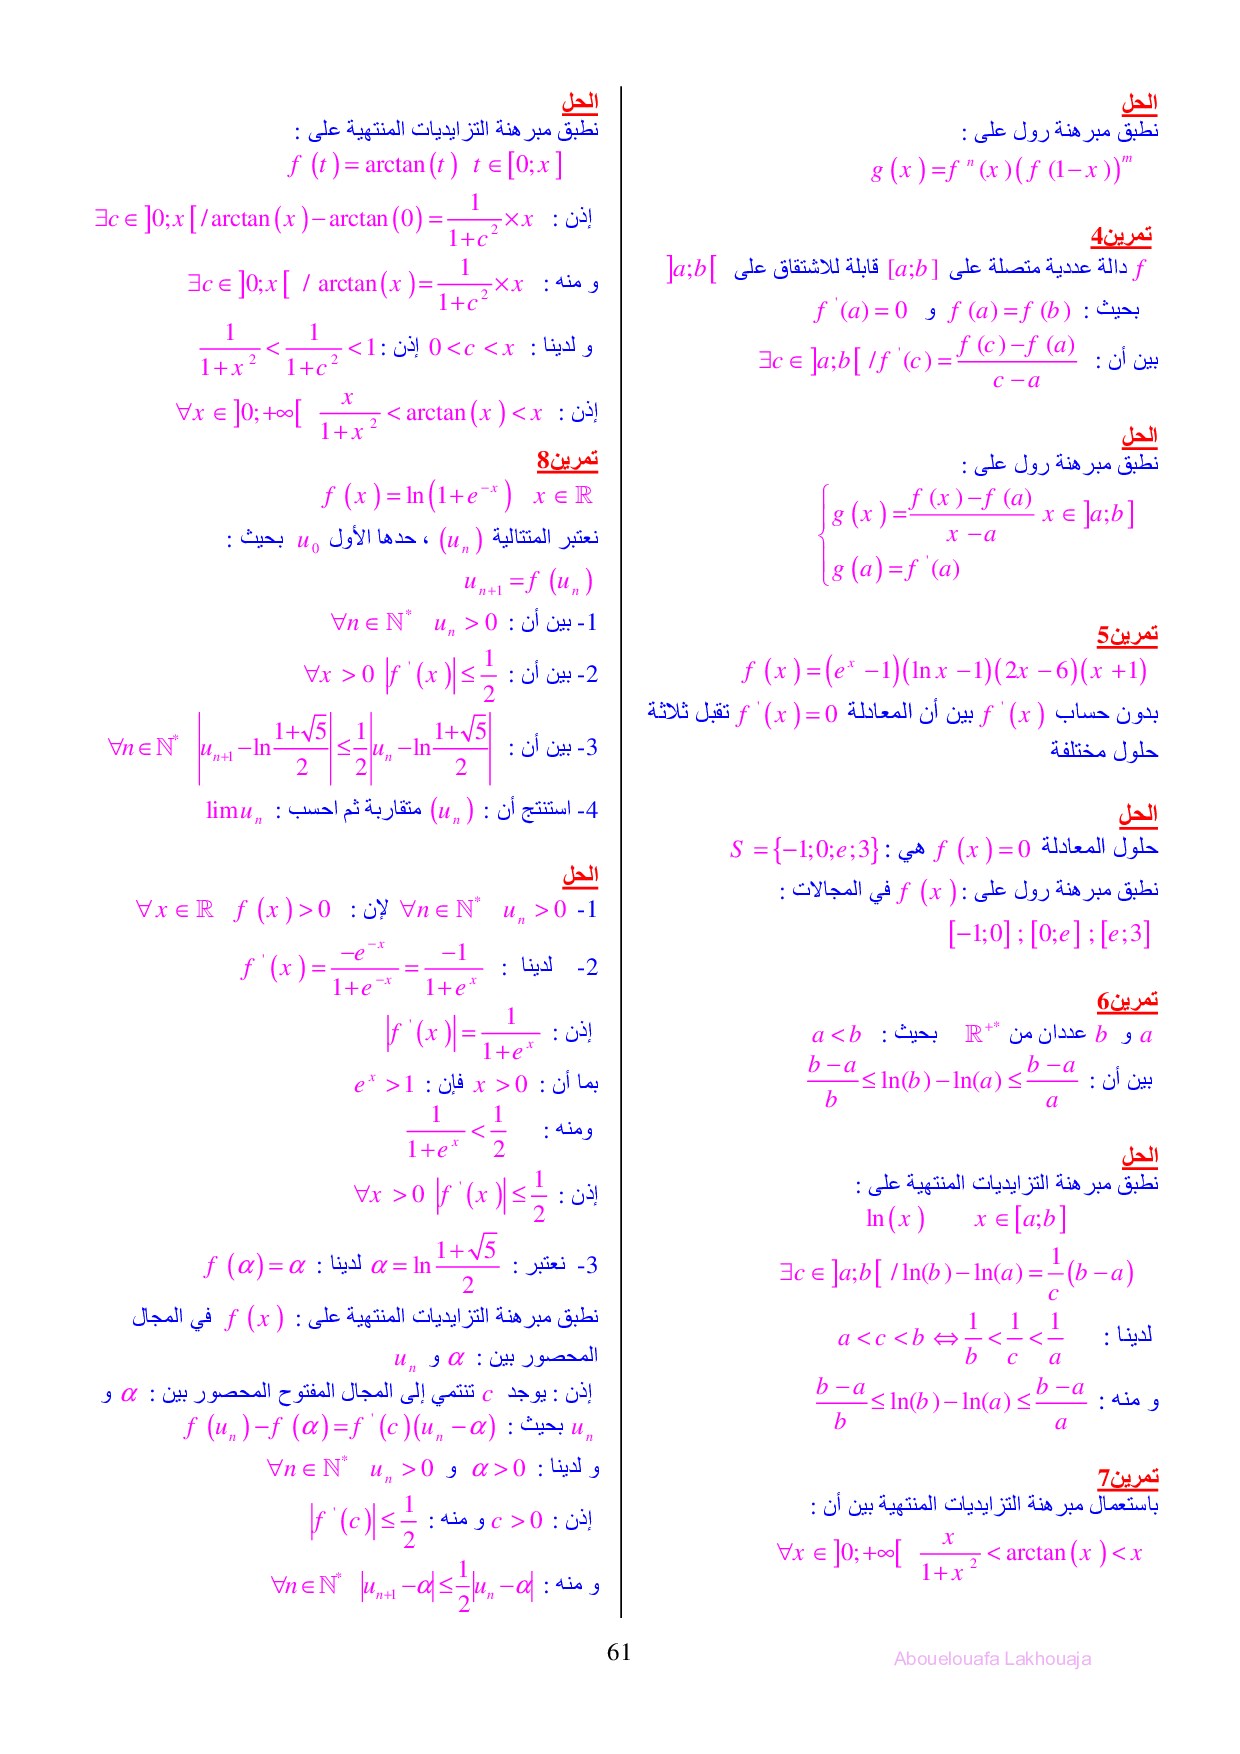 الحل
نطبق مبرهنة رول على :
g(x)=fⁿ(x)(f(1−x))ᵐ
تمرين4
f دالة عددية متصلة على [a;b] قابلة للاشتقاق على ]a;b[
بحيث : f(a)=f(b) و f'(a)=0
بين أن : ∃c∈]a;b[ /f'(c)=(f(c)−f(a))/(c−a)
الحل
نطبق مبرهنة رول على :
{ g(x)=(f(x)−f(a))/(x−a) x∈]a;b]
g(a)=f'(a)
تمرين5
f(x)=(eˣ−1)(ln x−1)(2x−6)(x+1)
بدون حساب f'(x) بين أن المعادلة f'(x)=0 تقبل ثلاثة
حلول مختلفة
الحل
حلول المعادلة f(x)=0 هي : S={−1;0;e;3}
نطبق مبرهنة رول على : f(x) في المجالات :
[−1;0] ; [0;e] ; [e;3]
تمرين6
a و b عددان من ℝ⁺* بحيث : a<b
بين أن : (b−a)/b ≤ ln(b)−ln(a) ≤ (b−a)/a
الحل
نطبق مبرهنة التزايديات المنتهية على :
ln(x) x∈[a;b]
∃c∈]a;b[ /ln(b)−ln(a)=1/c(b−a)
لدينا : a<c<b ⇔ 1/b<1/c<1/a
و منه : (b−a)/b ≤ ln(b)−ln(a) ≤ (b−a)/a
تمرين7
باستعمال مبرهنة التزايديات المنتهية بين أن :
∀x∈]0;+∞[ x/(1+x²)<arctan(x)<x
الحل
نطبق مبرهنة التزايديات المنتهية على :
f(t)=arctan(t) t∈[0;x]
إذن : ∃c∈]0;x[/arctan(x)−arctan(0)=1/(1+c²)×x
و منه : ∃c∈]0;x[ / arctan(x)=1/(1+c²)×x
و لدينا : 0<c<x إذن : 1/(1+x²)<1/(1+c²)<1
إذن : ∀x∈]0;+∞[ x/(1+x²)<arctan(x)<x
تمرين8
f(x)=ln(1+e⁻ˣ) x∈ℝ
نعتبر المتتالية (uₙ) ، حدها الأول u₀ بحيث :
uₙ₊₁=f(uₙ)
1- بين أن : ∀n∈ℕ* uₙ>0
2- بين أن : ∀x>0 |f'(x)|≤1/2
3- بين أن : ∀n∈ℕ* |uₙ₊₁−ln (1+√5)/2|≤1/2|uₙ−ln (1+√5)/2|
4- استنتج أن : (uₙ) متقاربة ثم احسب : lim uₙ
الحل
1- ∀n∈ℕ* uₙ>0 لإن : ∀x∈ℝ f(x)>0
2- لدينا : f'(x)=−e⁻ˣ/(1+e⁻ˣ)=−1/(1+eˣ)
إذن : |f'(x)|=1/(1+eˣ)
بما أن : x>0 فإن : eˣ>1
ومنه : 1/(1+eˣ)<1/2
إذن : ∀x>0 |f'(x)|≤1/2
3- نعتبر : α=ln (1+√5)/2 لدينا : f(α)=α
نطبق مبرهنة التزايديات المنتهية على : f(x) في المجال
المحصور بين : α و uₙ
إذن : يوجد c تنتمي إلى المجال المفتوح المحصور بين : α و
uₙ بحيث : f(uₙ)−f(α)=f'(c)(uₙ−α)
و لدينا : α>0 و ∀n∈ℕ* uₙ>0
إذن : c>0 و منه : |f'(c)|≤1/2
و منه : ∀n∈ℕ* |uₙ₊₁−α|≤1/2|uₙ−α|
61
Abouelouafa Lakhouaja